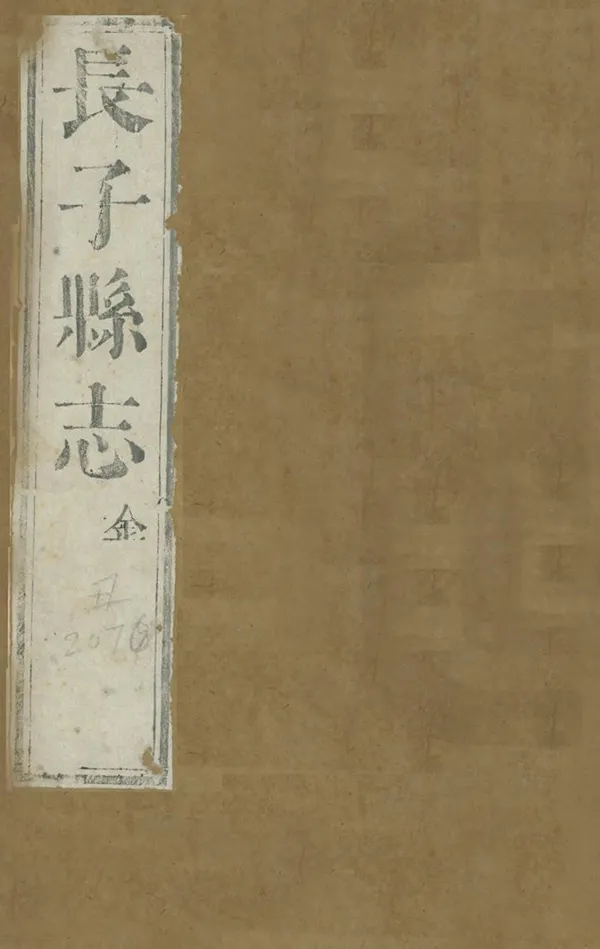 長子縣志
金
2076